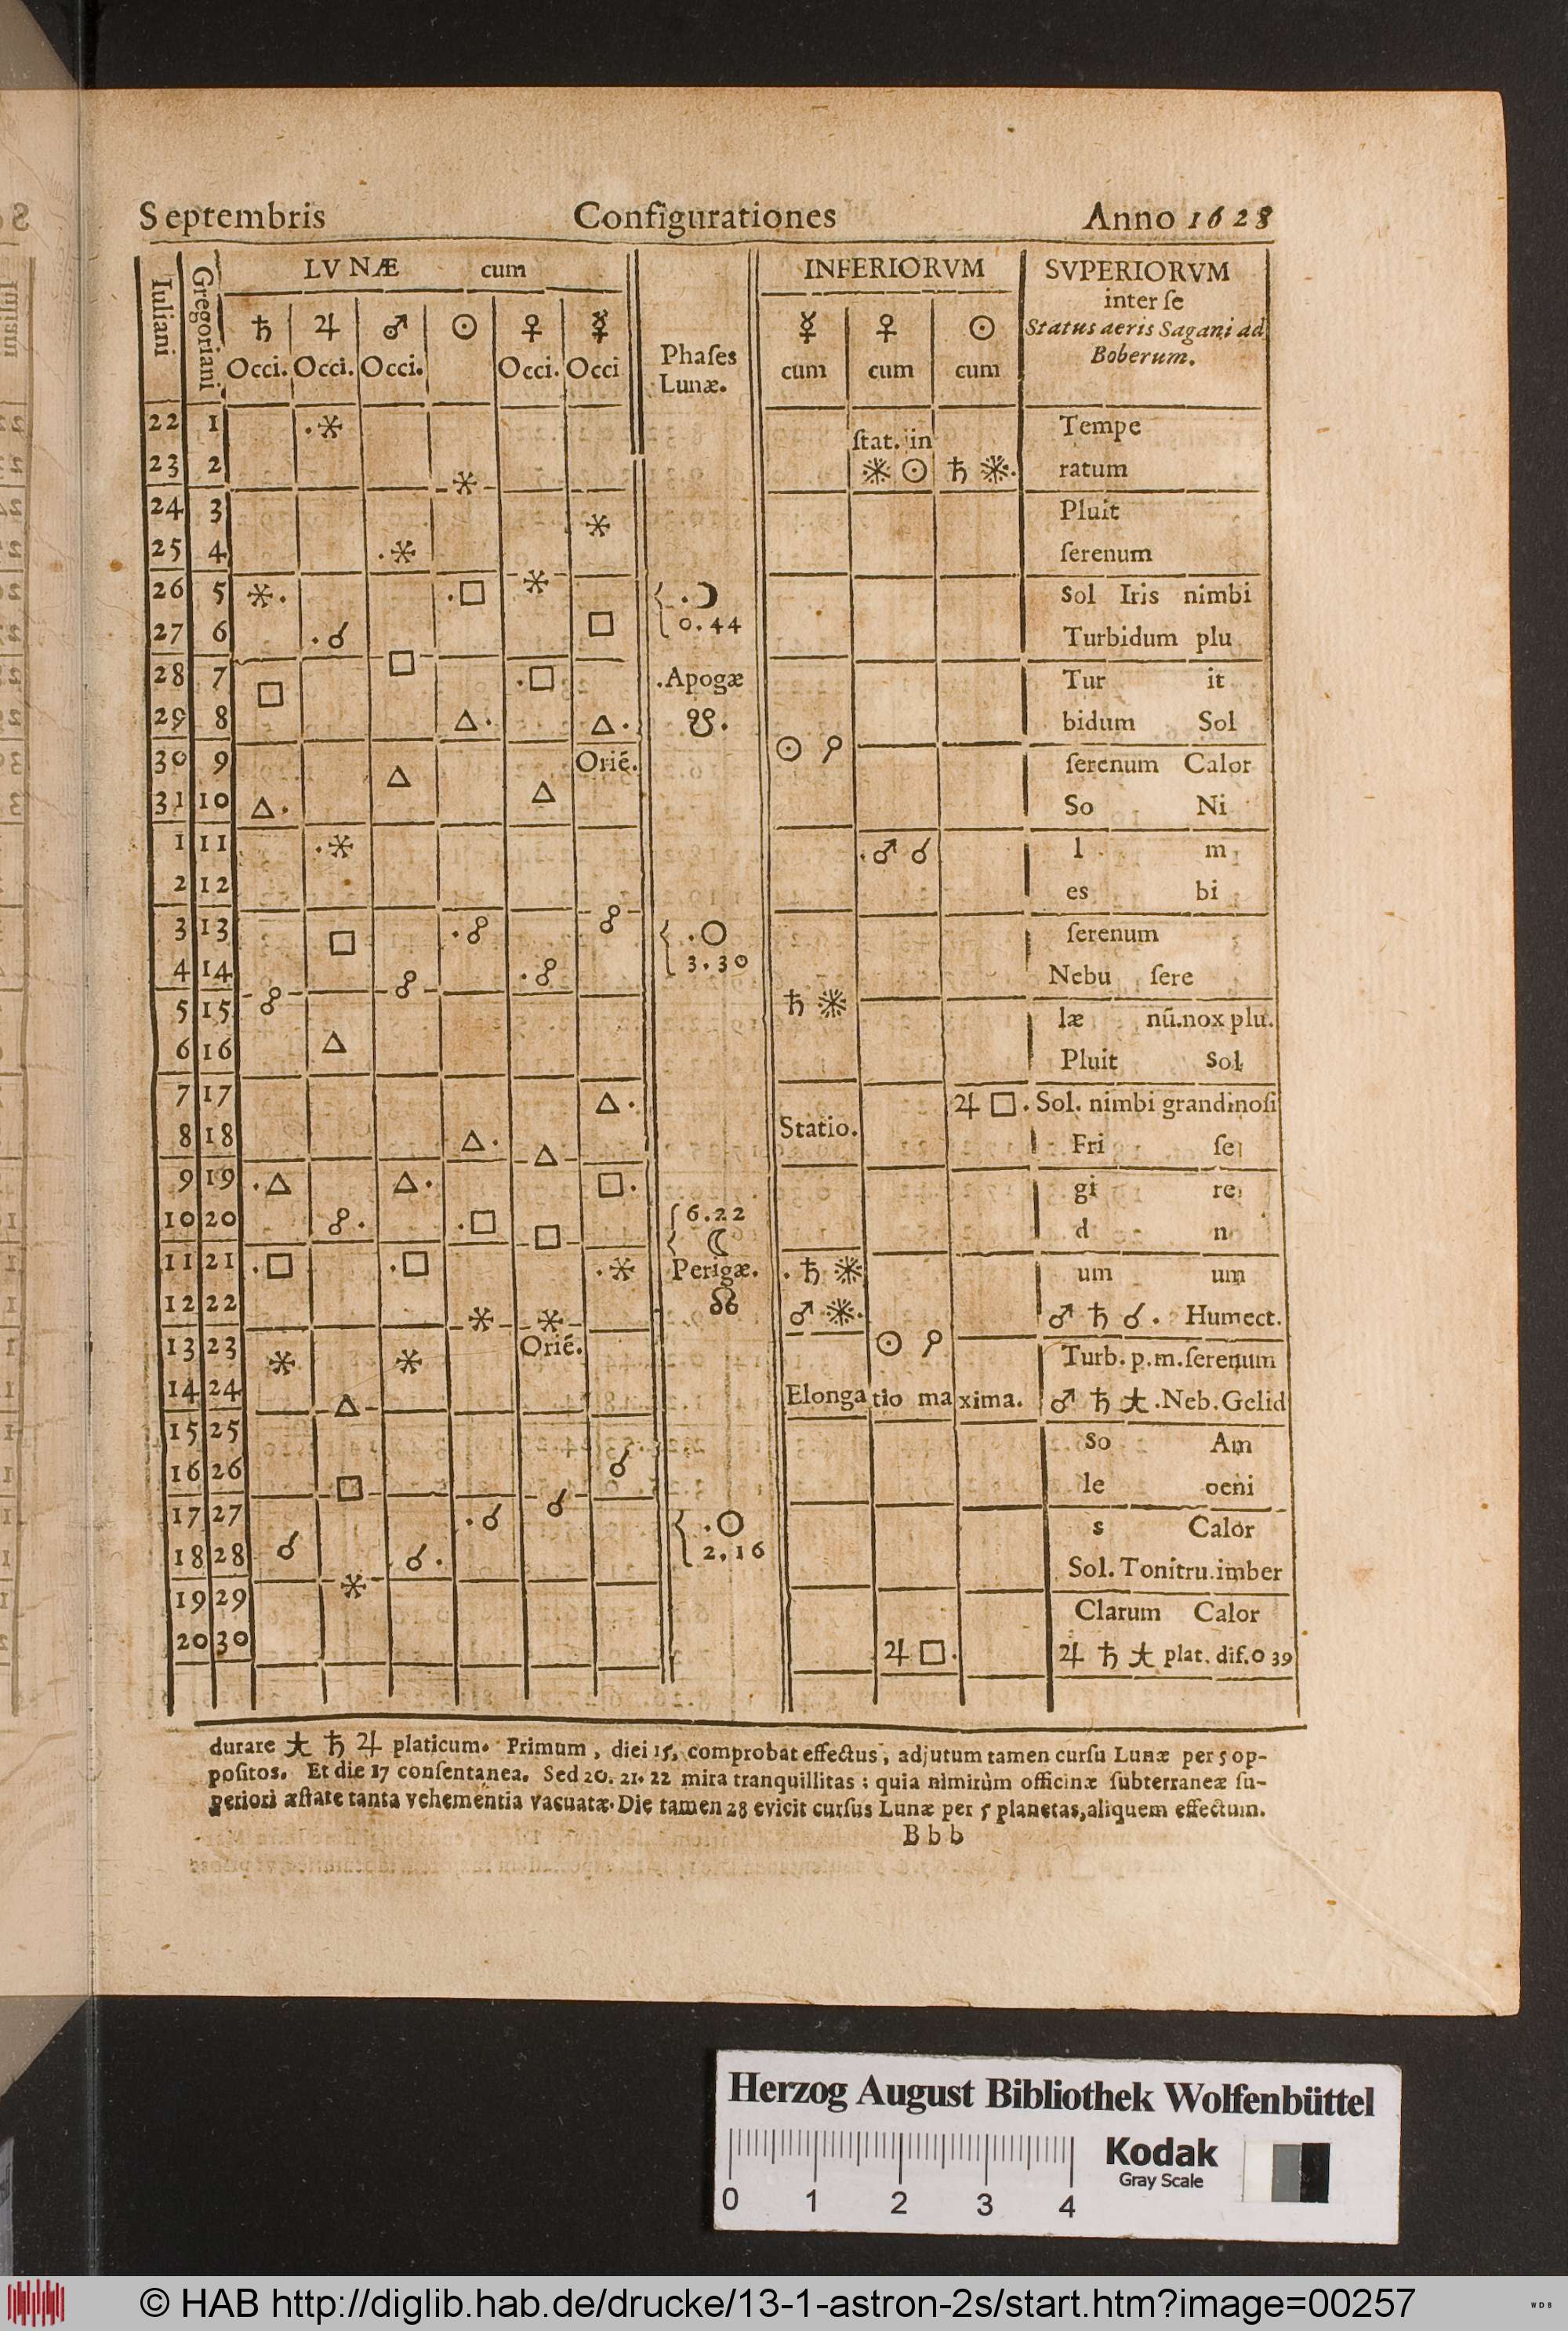 Septembris Configurationes Anno 1628
Iuliani Gregoriani LVNÆ cum Phaſes Lunæ. INFERIORVM SVPERIORVM
inter ſe
Status aeris Sagani ad
Boberum.
♄ ♃ ♂ ☉ ♀ ☿ ☿ ♀ ☉
Occi. Occi. Occi. Occi. Occi cum cum cum
22 1 .⚹ Tempe
23 2 ⚹ ſtat. in ⚹ ☉ ♄ ⚹. ratum
24 3 ⚹ Pluit
25 4 .⚹ ſerenum
26 5 ⚹. .□ ⚹ .☽ Sol Iris nimbi
27 6 .☌ □ 0.44 Turbidum plu
28 7 □ □ .□ .Apogæ Tur it
29 8 △. △. ☋. bidum Sol
30 9 △ Orié. ☉ ☌ ſerenum Calor
31 10 △. △ So Ni
1 11 .⚹ .♂ ☌ l m
2 12 es bi
3 13 □ .☍ ☍ .○ ſerenum
4 14 ☍ .☍ 3.30 Nebu ſere
5 15 ☍ ♄ ⚹ læ nū.nox plu.
6 16 △ Pluit Sol
7 17 △. ♃ □. Sol. nimbi grandinoſi
8 18 △. △ Statio. Fri ſe
9 19 .△ △. □. gi re
10 20 ☍. .□ □ 6.22 ☾ d n
11 21 .□ .□ .⚹ Perigæ. .♄ ⚹ um um
12 22 ⚹ ⚹ ☊ ♂ ⚹. ♂ ♄ ☌. Humect.
13 23 ⚹ ⚹ Orié. ☉ ☌ Turb. p.m.ſerenum
14 24 △ Elongatio maxima. ♂ ♄ 大.Neb.Gelid
15 25 So Am
16 26 □ ☌ le oeni
17 27 .☌ ☌ .○ s Calor
18 28 ☌ ☌. 2,16 Sol.Tonitru.imber
19 29 ⚹ Clarum Calor
20 30 ♃ □. ♃ ♄ 大 plat. dif.0 39
durare 大 ♄ ♃ platicum. Primum, diei 15, comprobat effectus, adjutum tamen curſu Lunæ per 5 op-
poſitos. Et die 17 conſentanea. Sed 20. 21. 22 mira tranquillitas; quia nimirùm officinæ ſubterraneæ ſu-
periori æſtate tanta vehementia vacuatæ. Die tamen 28 evicit curſus Lunæ per 5 planetas, aliquem effectum.
Bbb
Herzog August Bibliothek Wolfenbüttel
Kodak
Gray Scale
0 1 2 3 4
© HAB http://diglib.hab.de/drucke/13-1-astron-2s/start.htm?image=00257
WDB